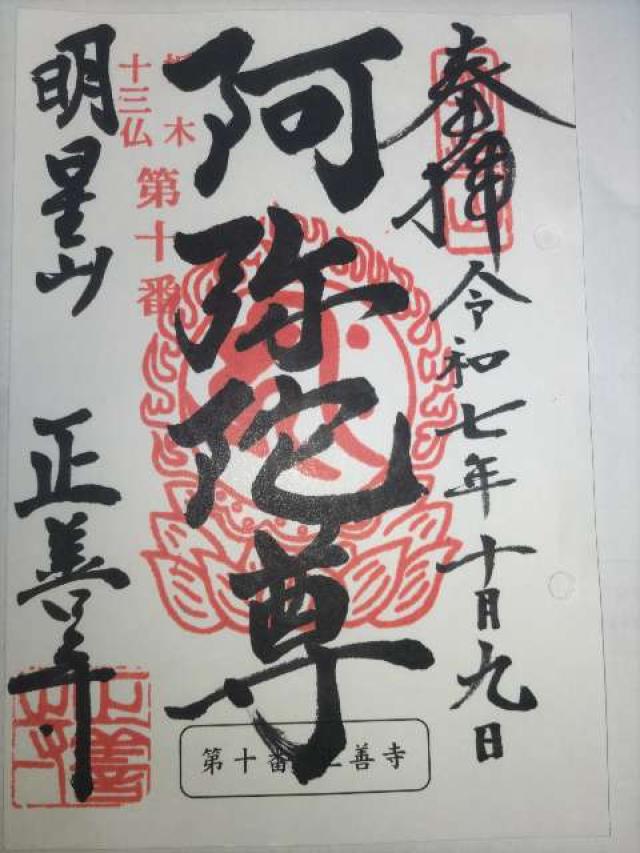 奉拝
令和七年十月九日
阿弥陀尊
栃木
十三仏
第十番
明星山
正善寺
第十番 善寺